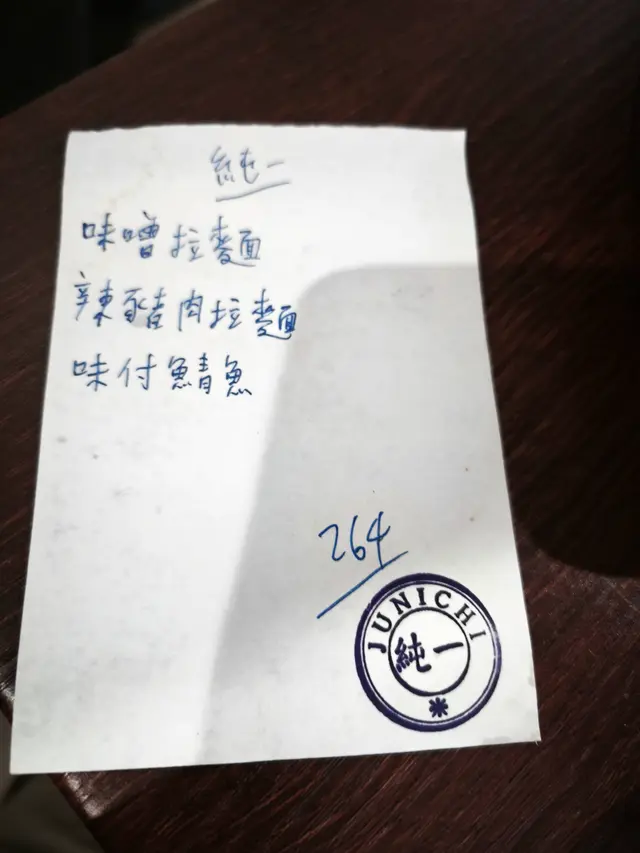 純一
味噌拉麵
辣豬肉拉麵
味付鯖魚
264
JUNICHI
純一